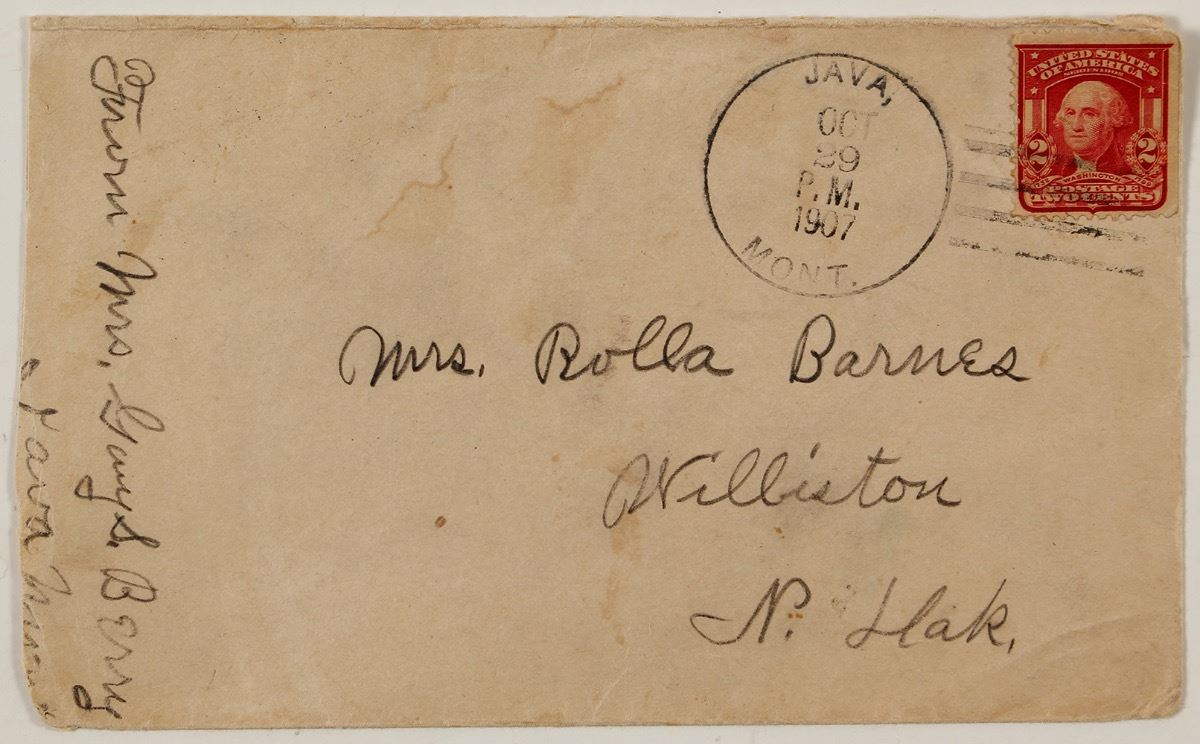 JAVA,
OCT
29
P.M.
1907
MONT.
UNITED STATES
OF AMERICA
SERIES 1902
2 2
1732 WASHINGTON 1799
POSTAGE
TWO CENTS
Mrs. Rolla Barnes
Williston
N. Dak.
From Mrs. Guy S. Berry
Java